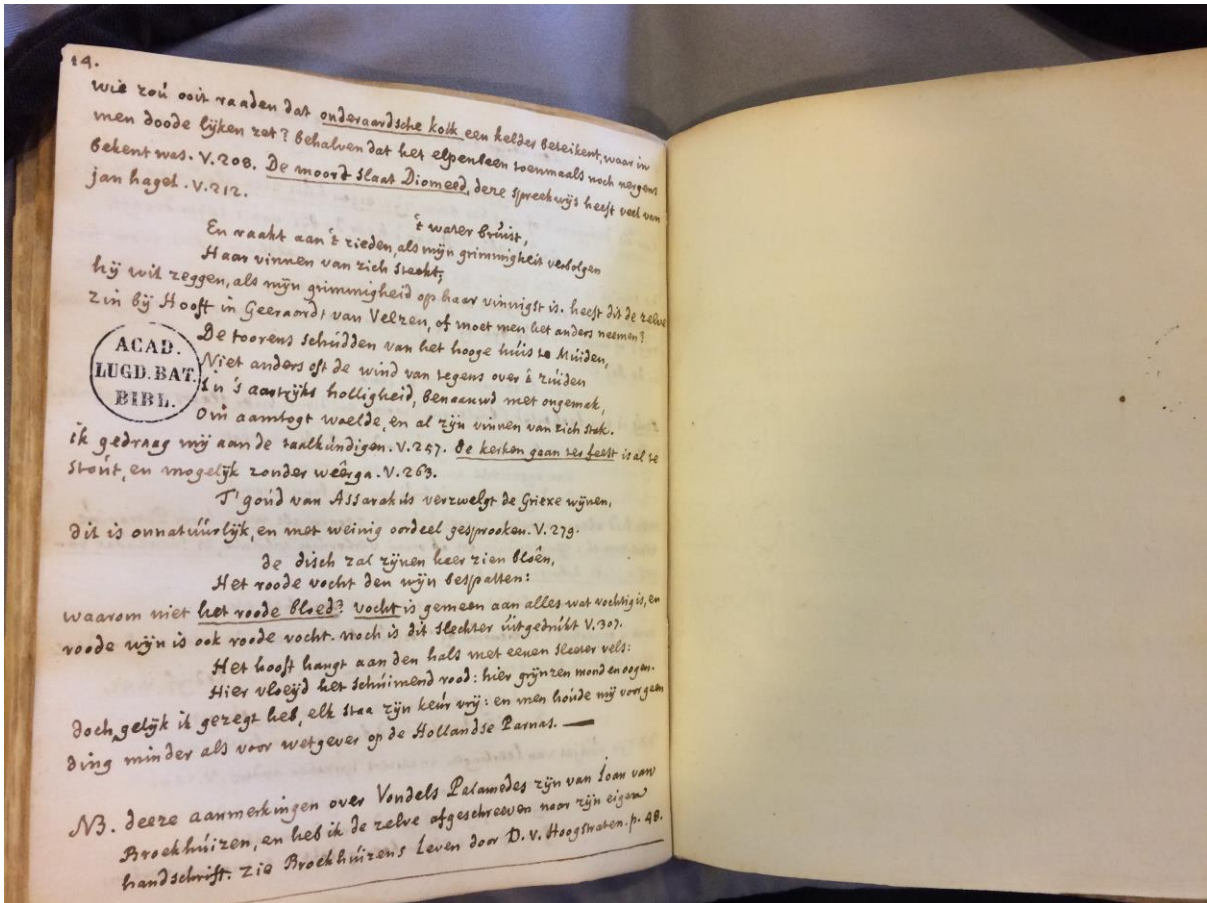 14.
wie zoú ooit raaden dat onderaardsche kolk een kelder beteikent, waar in
men doode lijken zet? behalven dat het elpenbeen toenmaals noch nergens
bekent was. V. 208. De moord slaat Diomeed, deze spreekwijs heeft veel van
jan hagel. V. 212.
't water brúist,
En raakt aan 't zieden, als mijn grimmigheit verbolgen
Haar vinnen van zich steekt;
hij wil zeggen, als mijn grimmigheid op haar vinnigst is. heeft dit de zelve
zin bij Hooft in Geeraardt van Velzen, of moet men het anders neemen?
De toorens schúdden van het hooge húis te Múiden,
Niet anders oft de wind van tegens over 't zúiden
In 's aartrijks holligheid, benaauwd met ongemak,
Om aamtogt woelde, en al zijn vinnen van zich stak.
ACAD.
LUGD. BAT.
BIBL.
ik gedraag mij aan de taalkúndigen. V. 257. de kerken gaan ter feest is al te
stoút, en mogelijk zonder weêrga. V. 263.
T' goúd van Assarakús verzwelgt de Griexe wijnen,
dit is onnatúúrlijk, en met weinig oordeel gesprooken. V. 279.
de disch zal zijnen heer zien bloên,
Het roode vocht den wijn bespatten:
waarom niet het roode bloed? vocht is gemeen aan alles wat vochtig is, en
roode wijn is ook roode vocht. noch is dit slechter úitgedrúkt V. 307.
Het hooft hangt aan den hals met eenen sleeter vels:
Hier vloeijd het schúimend rood: hier grijnzen mond en oogen.
doch, gelijk ik gezegt heb, elk staa zijn keúr vrij: en men hoúde mij voor geen
ding minder als voor wetgever op de Hollandse Parnas. —
NB. deeze aanmerkingen over Vondels Palamedes zijn van Ioan van
Broekhúizen, en heb ik de zelve afgeschreeven naar zijn eigen
handschrift. zie Broekhúizens Leven door D. v. Hoogstraten. p. 48.